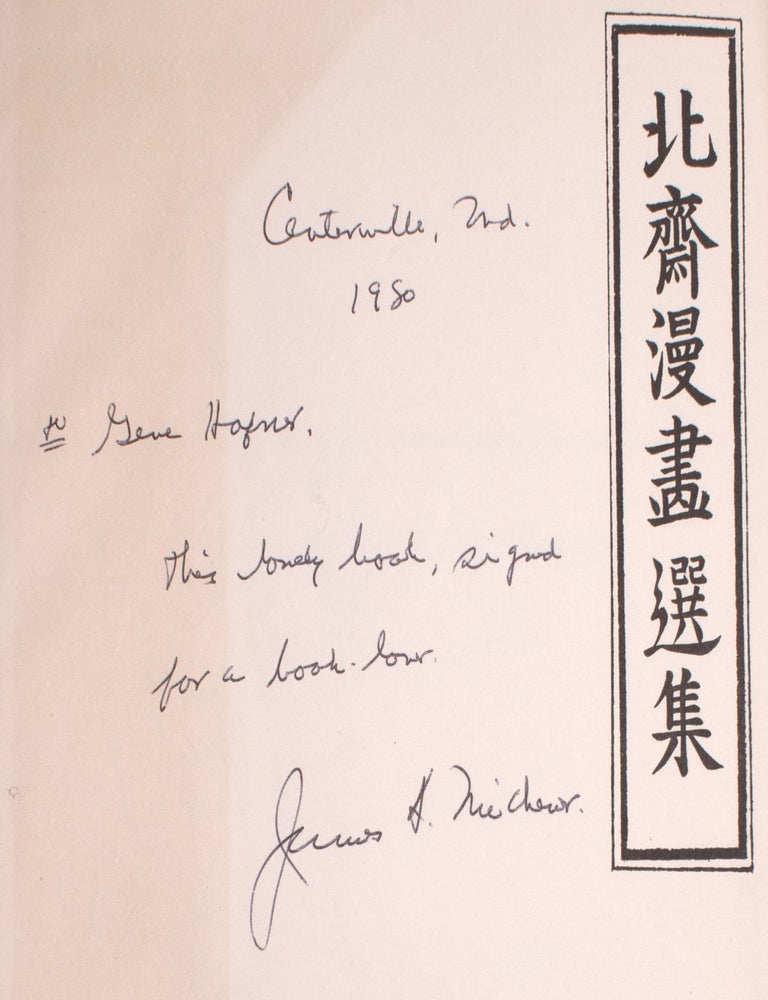 Centerville, Md.
1980
to Gene Hafner.
This lovely book, signed
for a book-lover.
James A. Michener.
北齋漫畫選集